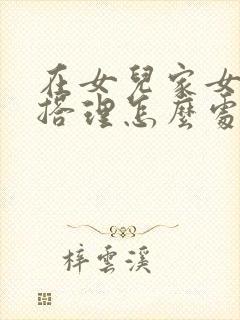 在女兒家女
搭理怎麼處
梓雲溪